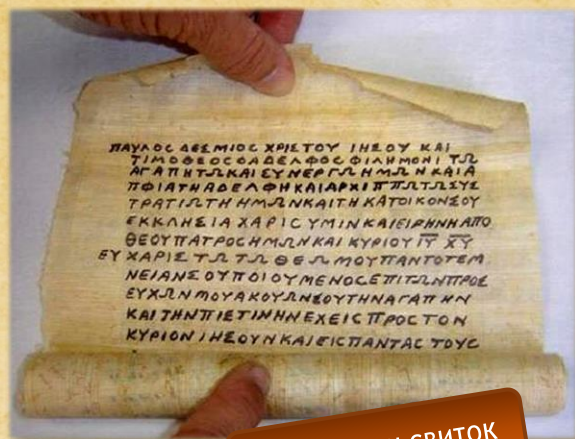 ΠΑΥΛΟΣ ΔΕΣΜΙΟΣ ΧΡΙΣΤΟΥ ΙΗΣΟΥ ΚΑΙ
ΤΙΜΟΘΕΟΣΟΑΔΕΛΦΟΣΦΙΛΗΜΟΝΙ ΤΩ
ΑΓΑΠΗΤΩΚΑΙΣΥΝΕΡΓΩΗΜΩΝΚΑΙΑ
ΠΦΙΑΤΗΑΔΕΛΦΗΚΑΙΑΡΧΙΠΠΩΤΩΣΥΣ
ΤΡΑΤΙΩΤΗΗΜΩΝΚΑΙΤΗΚΑΤΟΙΚΟΝΣΟΥ
ΕΚΚΛΗΣΙΑΧΑΡΙΣΥΜΙΝΚΑΙΕΙΡΗΝΗΑΠΟ
ΘΕΟΥΠΑΤΡΟΣΗΜΩΝΚΑΙ ΚΥΡΙΟΥ ΙΥ ΧΥ
ΕΥ ΧΑΡΙΣΤΩ ΤΩ ΘΕΩΜΟΥΠΑΝΤΟΤΕΜ
ΝΕΙΑΝΣΟΥΠΟΙΟΥΜΕΝΟΣΕΠΙΤΩΝΠΡΟΣ
ΕΥΧΩΝΜΟΥΑΚΟΥΩΝΣΟΥΤΗΝΑΓΑΠΗΝ
ΚΑΙΤΗΝΠΙΣΤΙΝΗΝΕΧΕΙΣΠΡΟΣΤΟΝ
ΚΥΡΙΟΝΙΗΣΟΥΝΚΑΙΕΙΣΠΑΝΤΑΣ ΤΟΥΣ
СВИТОК